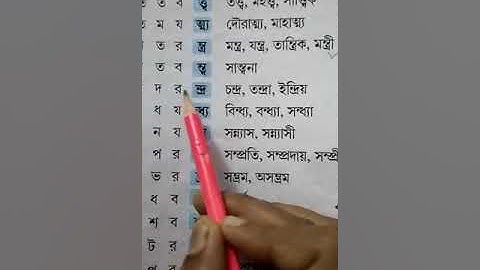 ত ত ব ত্ত্ব তত্ত্ব, মহত্ত্ব, সাত্ত্বিক
ত ম য ত্ম্য দৌরাত্ম্য, মাহাত্ম্য
ত র ন্ত্র মন্ত্র, যন্ত্র, তান্ত্রিক, মন্ত্রী
ত ব ন্ত্ব সান্ত্বনা
দ র ন্দ্র চন্দ্র, তন্দ্রা, ইন্দ্রিয়
ধ য ন্ধ্য বিন্ধ্য, বন্ধ্যা, সন্ধ্যা
ন য সন্ন্যাস, সন্ন্যাসী
প র সম্প্রতি, সম্প্রদায়,
ভ র সম্ভ্রম, অসম্ভ্রম
ধ ব
শ ব
ট র